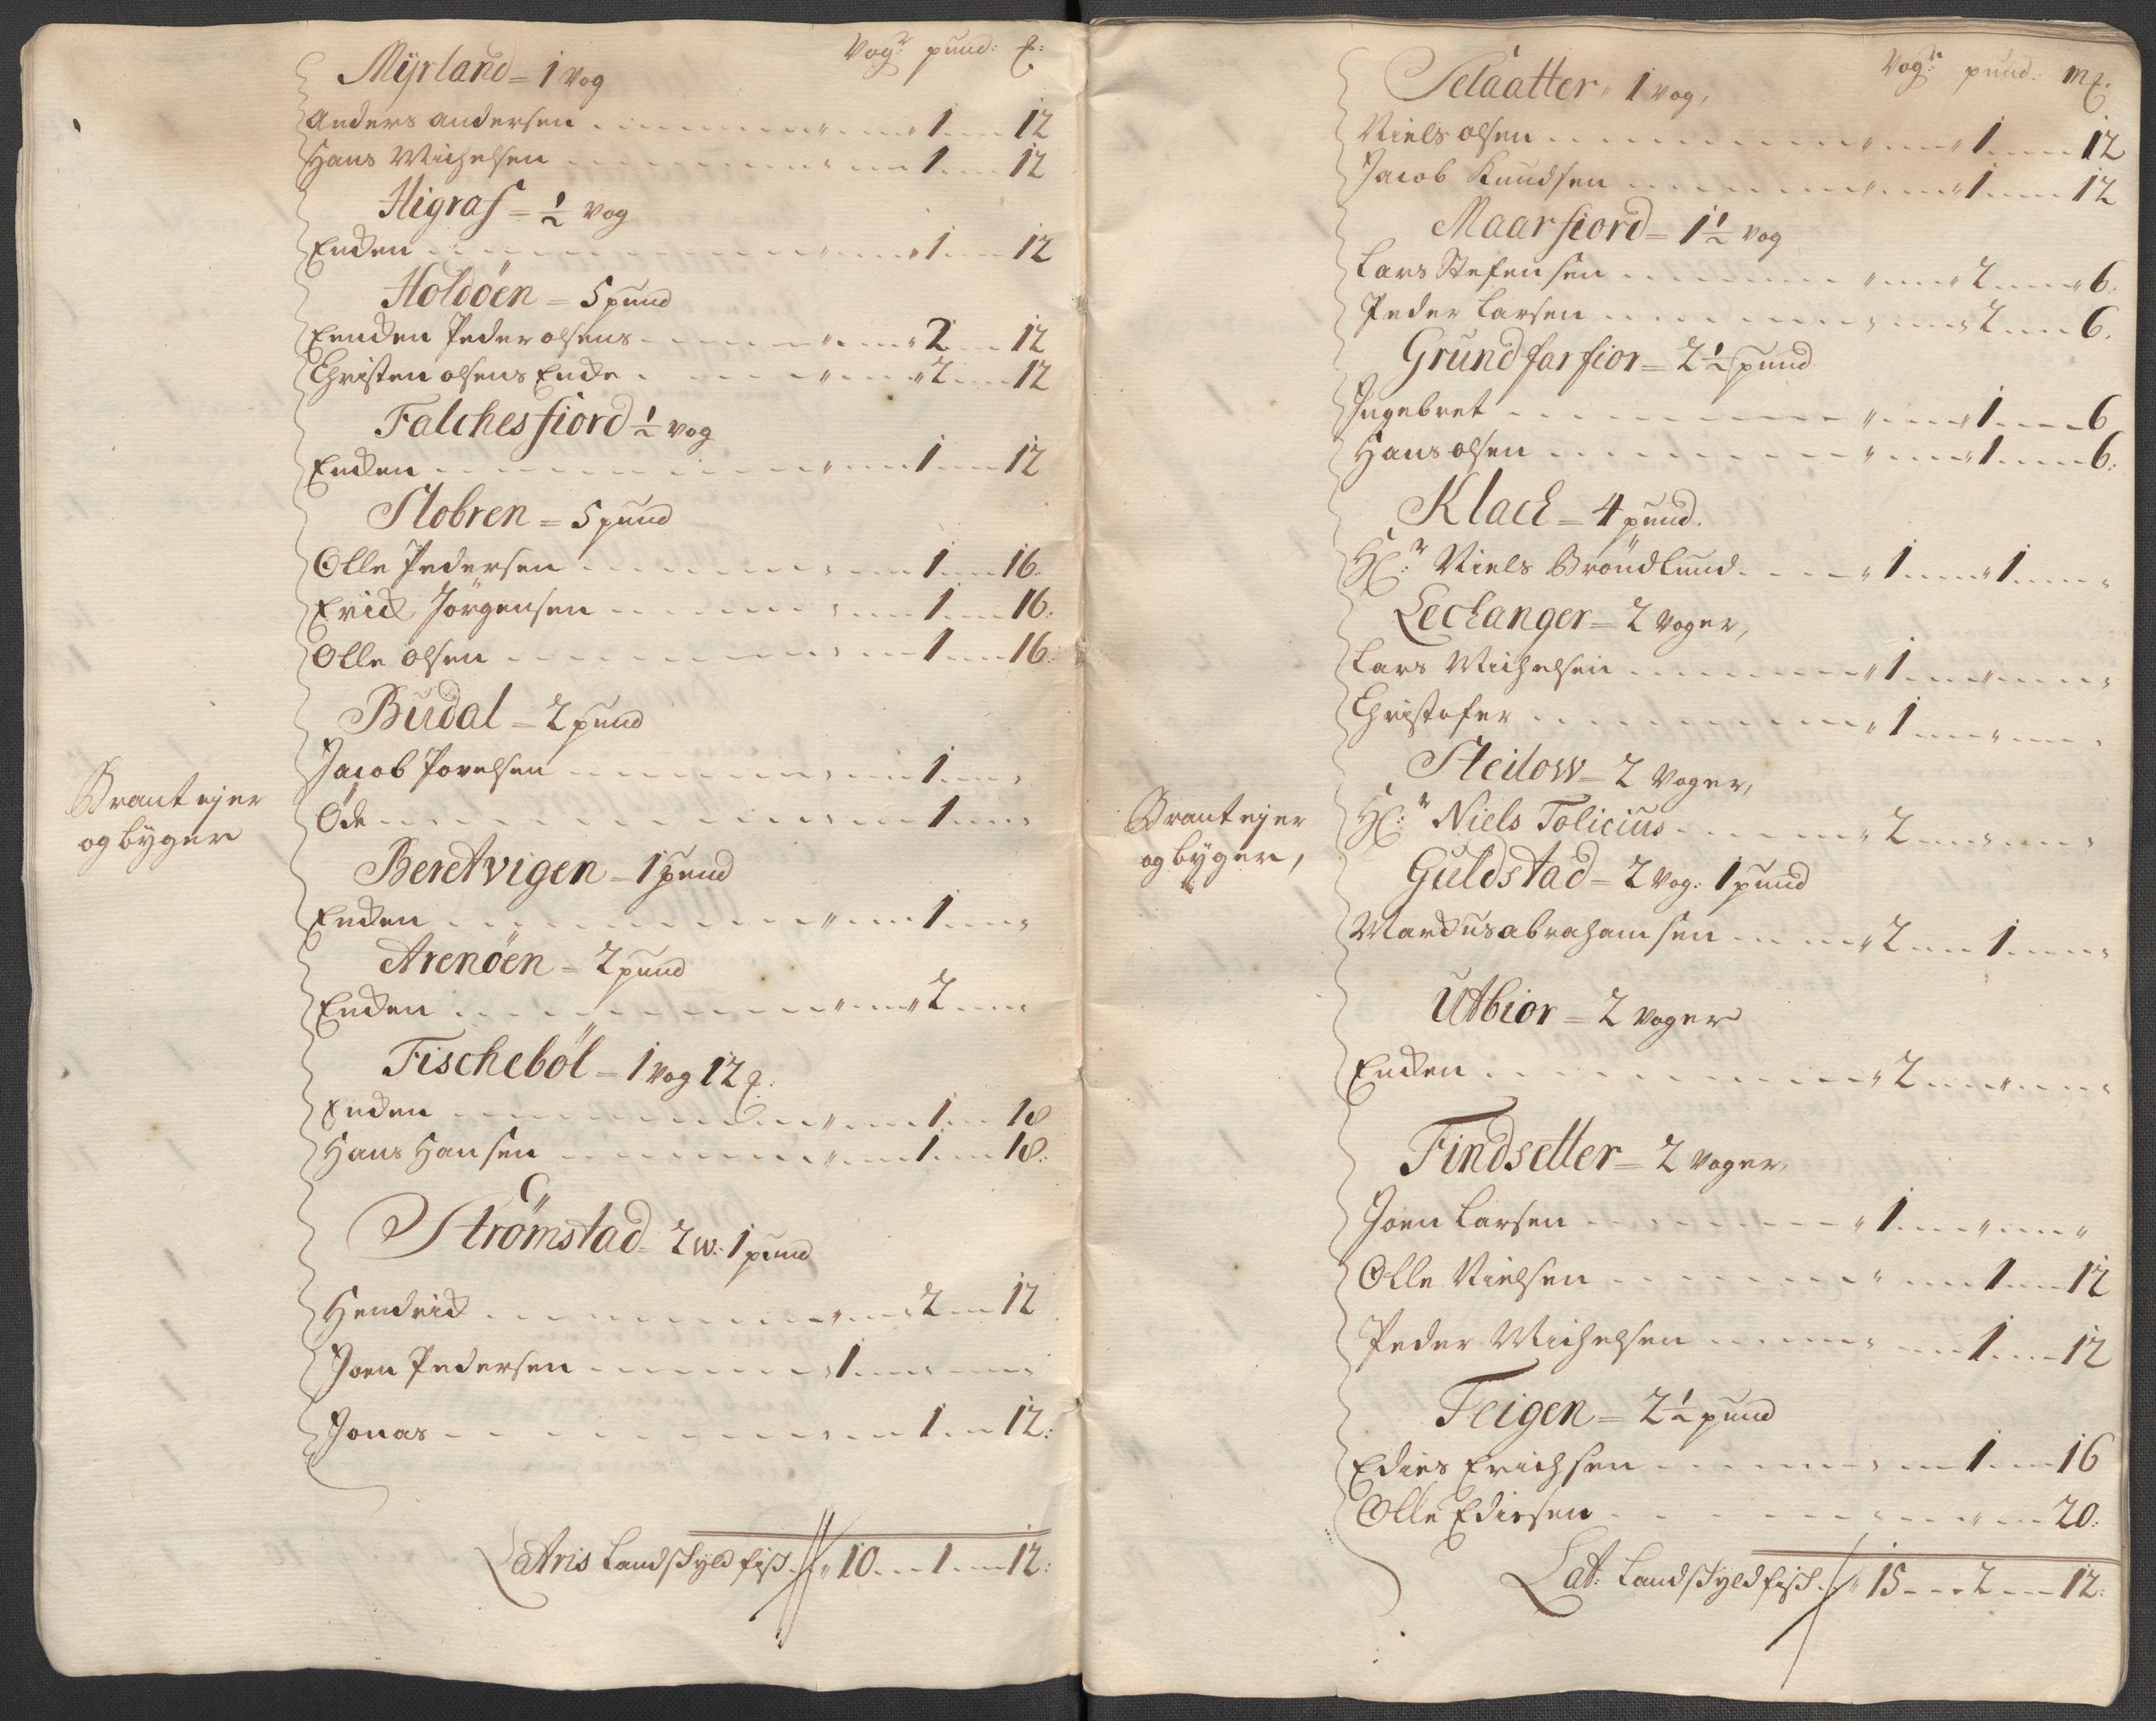 Vogr: pund: ℔:
Myrland = 1 vog
Anders andersen " 1 12
Hans Michelsen 1 12
Higraf = ½ vog
Encken " 1 12
Holdöen = 5 pund
Eencken Peder olsens " 2 12
Christen olsens Encke " 2 12
Falchesfiord ½ vog
Encken " 1 12
Slobren = 5 pund
Olle Pedersen 1 16:
Erick Jörgensen 1 16:
Olle olsen 1 16:
Budal = 2 pund
Jacob Povelsen 1
Øde 1
Brant ejer
og byger
Beretvigen = 1 pund
Encken " 1
Arenöen = 2 pund
Encken " 2
Fischeböl = 1 vog 12 ℔:
Encken " 1 18
Hans Hansen " 1 18:
Strömstad = 2 w: 1 pund
Hendrick " 2 12
Joen Pedersen 1
Jonas 1 12:
Latris Landskyld fisk " 10 1 12:
Vogr: pund: m℔:
Selaatter " 1 vog,
Niels olsen " 1 12
Jacob Knudsen " 1 12
Maarfiord = 1½ vog
Lars Stefensen " 2 6:
Peder Larsen 2 6.
Grundfarfior = 2½ pund
Ingebret " 1 6
Hans olsen " 1 6:
Klack = 4 pund.
Hr: Niels Bröndlund " 1 1
Leckanger = 2 voger,
Lars Michelsen " 1
Christofer " 1
Steilow = 2 Voger,
Hr: Niels Tolicius " 2
Brant ejer
og byger,
Guldstad = 2 vog: 1 pund
Marckus abrahamsen " 2 1
Utbior = 2 voger
Encken " 2
Findsetter = 2 voger,
Joen Larsen " 1 "
Olle Nielsen " 1 12
Peder Michelsen 1 12
Feigen = 2½ pund
Edies Erichsen 1 16
Olle Ediesen 20:
Lat: Landskyld fisk " 15 2 12: